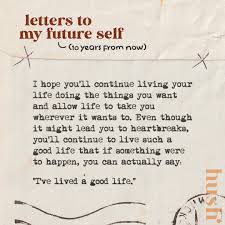 letters to
my future self
(10 years from now)
I hope you'll continue living your
life doing the things you want
and allow life to take you
wherever it wants to. Even though
it might lead you to heartbreaks,
you'll continue to live such a
good life that if something were
to happen, you can actually say:
"I've lived a good life."
hush